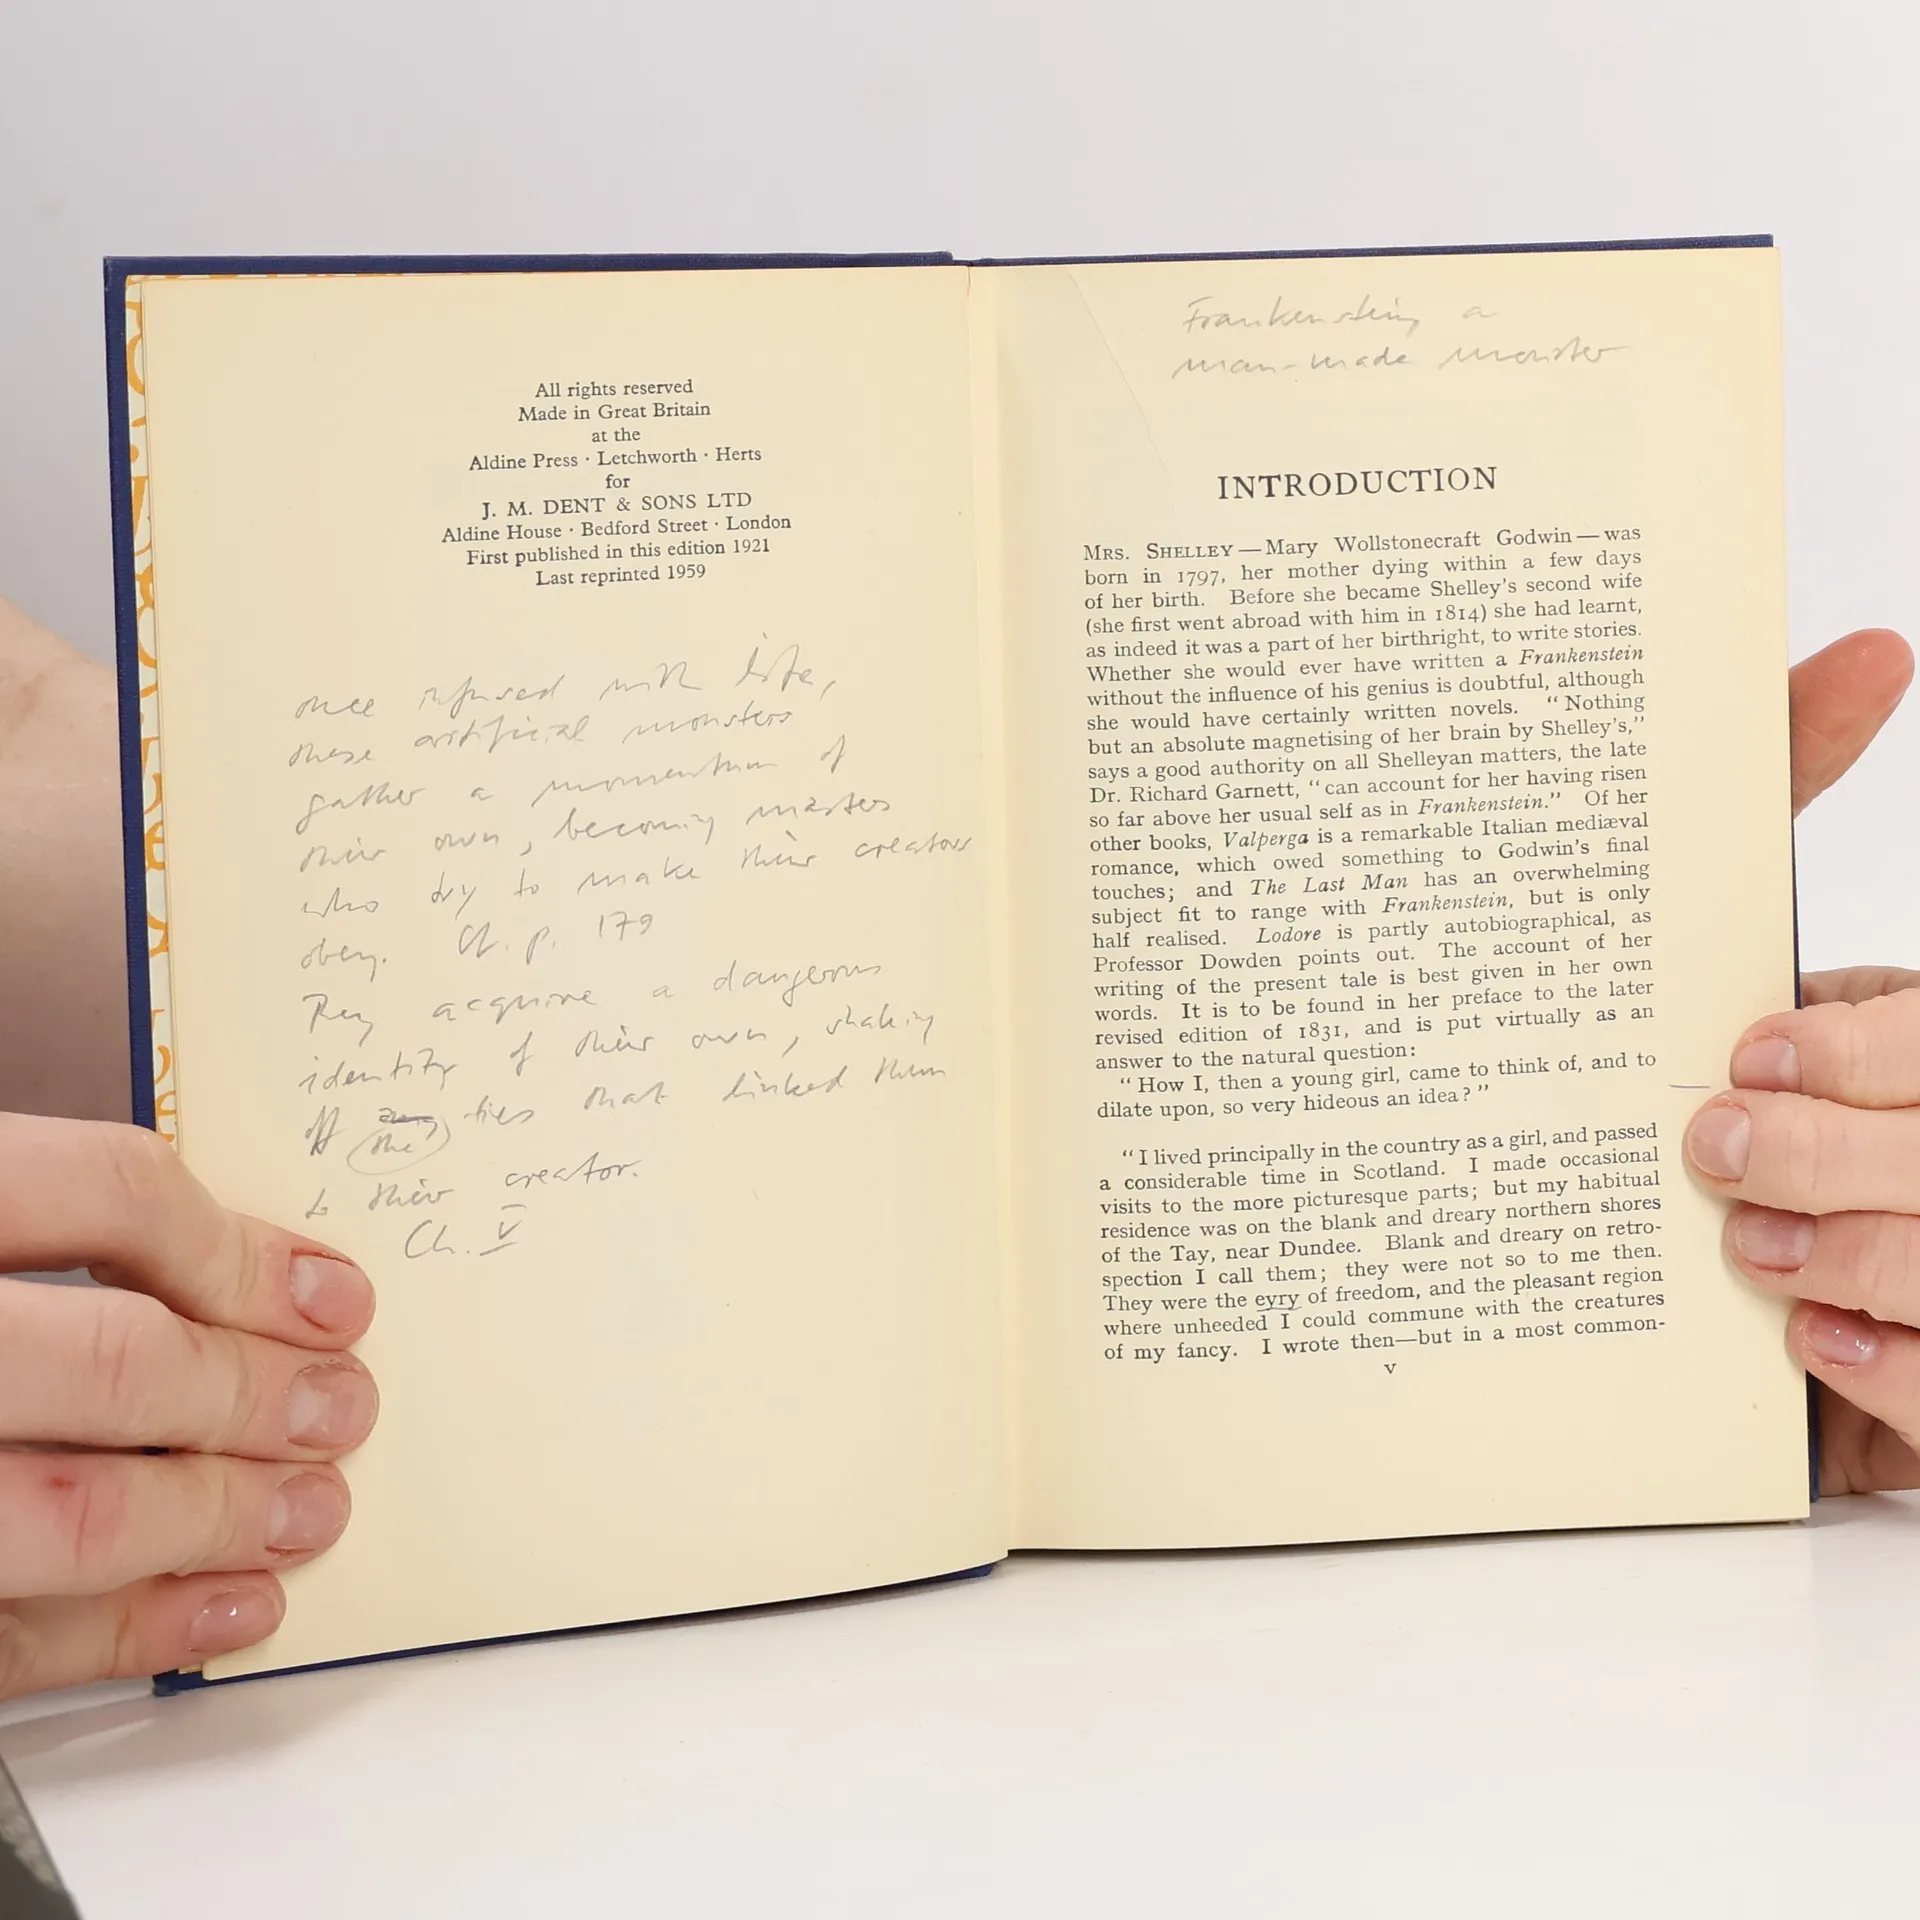 All rights reserved
Made in Great Britain
at the
Aldine Press · Letchworth · Herts
for
J. M. DENT & SONS LTD
Aldine House · Bedford Street · London
First published in this edition 1921
Last reprinted 1959
once infused with life,
these artificial monsters
gather a momentum of
their own, becoming masters
who try to make their creators
obey. Cf. p. 179
They acquire a dangerous
identity of their own, shaking
off any ties that linked them
the
to their creator.
Ch. V
Frankenstein, a
man-made monster
INTRODUCTION
MRS. SHELLEY—Mary Wollstonecraft Godwin—was
born in 1797, her mother dying within a few days
of her birth. Before she became Shelley's second wife
(she first went abroad with him in 1814) she had learnt,
as indeed it was a part of her birthright, to write stories.
Whether she would ever have written a Frankenstein
without the influence of his genius is doubtful, although
she would have certainly written novels. "Nothing
but an absolute magnetising of her brain by Shelley's,"
says a good authority on all Shelleyan matters, the late
Dr. Richard Garnett, "can account for her having risen
so far above her usual self as in Frankenstein." Of her
other books, Valperga is a remarkable Italian mediæval
romance, which owed something to Godwin's final
touches; and The Last Man has an overwhelming
subject fit to range with Frankenstein, but is only
half realised. Lodore is partly autobiographical, as
Professor Dowden points out. The account of her
writing of the present tale is best given in her own
words. It is to be found in her preface to the later
revised edition of 1831, and is put virtually as an
answer to the natural question:
"How I, then a young girl, came to think of, and to
dilate upon, so very hideous an idea?"
"I lived principally in the country as a girl, and passed
a considerable time in Scotland. I made occasional
visits to the more picturesque parts; but my habitual
residence was on the blank and dreary northern shores
of the Tay, near Dundee. Blank and dreary on retro-
spection I call them; they were not so to me then.
They were the eyry of freedom, and the pleasant region
where unheeded I could commune with the creatures
of my fancy. I wrote then—but in a most common-
v